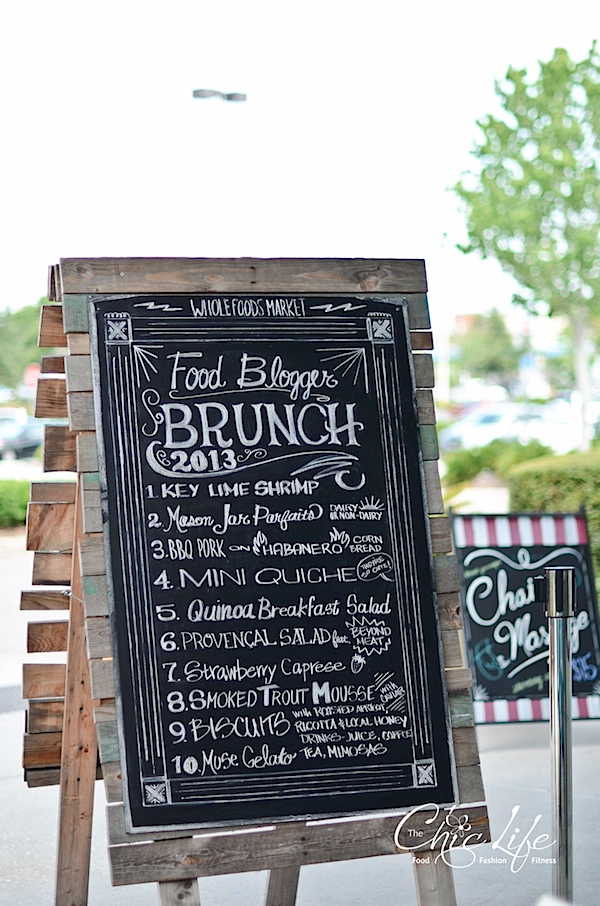 WHOLE FOODS MARKET
Food Blogger
BRUNCH
2013
1. KEY LIME SHRIMP
2. Mason Jar Parfaits DAIRY OR NON-DAIRY
3. BBQ PORK ON HABANERO CORN BREAD
4. MINI QUICHE THEY'RE SO CUTE!
5. Quinoa Breakfast Salad
6. PROVENÇAL SALAD feat. BEYOND MEAT
7. Strawberry Caprese
8. SMOKED TROUT MOUSSE WITH CAVIAR
9. BISCUITS WITH ROASTED APRICOT RICOTTA & LOCAL HONEY
DRINKS - JUICE, COFFEE
10. Muse Gelato TEA, MIMOSAS
Chair
Massage
$15
The Chic Life
Food Fashion Fitness